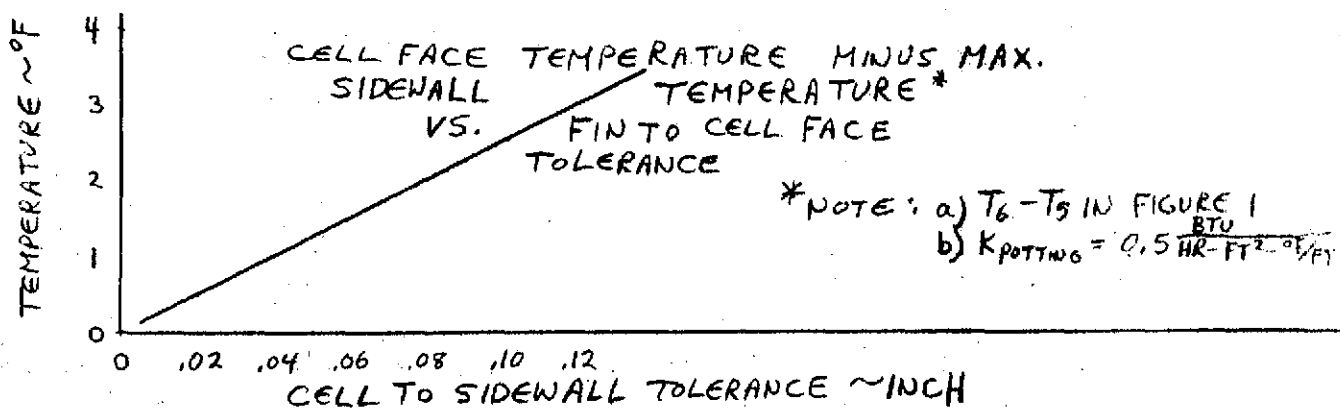 TEMPERATURE ~ °F
4
3
2
1
0
CELL FACE TEMPERATURE MINUS MAX.
SIDEWALL TEMPERATURE *
VS. FIN TO CELL FACE
TOLERANCE
*NOTE: a) T6 - T5 IN FIGURE 1
b) K POTTING = 0.5 BTU/HR-FT²-°F/FT
0 .02 .04 .06 .08 .10 .12
CELL TO SIDEWALL TOLERANCE ~INCH